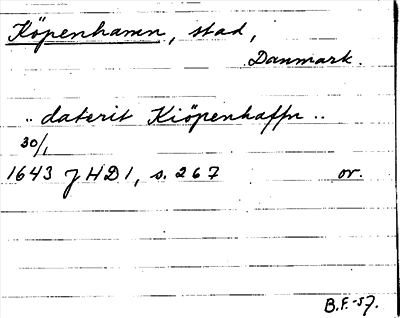 Köpenhamn, stad,
Danmark.
.. daterit Kiöpenhaffn ..
30/1
1643 JHD 1, s. 267 or.
B.F.-57.